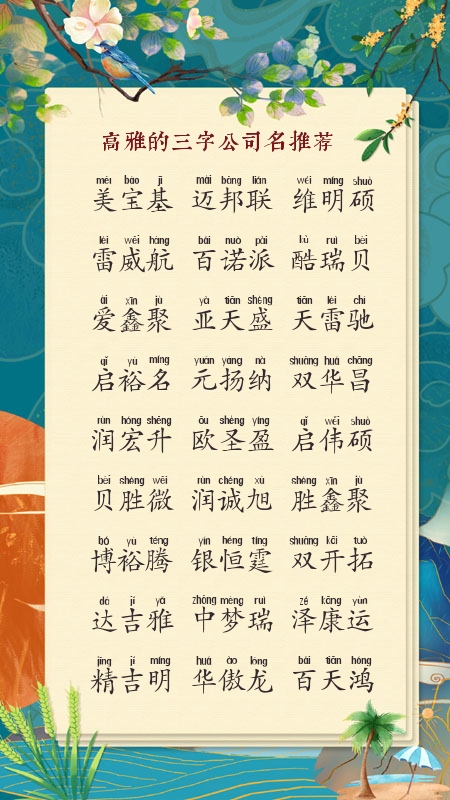 高雅的三字公司名推荐
měi bǎo jī mài bāng lián wéi míng shuò
美宝基 迈邦联 维明硕
léi wēi háng bǎi nuò pài kù ruì bèi
雷威航 百诺派 酷瑞贝
ài xīn jù yà tiān shèng tiān léi chí
爱鑫聚 亚天盛 天雷驰
qǐ yù míng yuán yáng nà shuāng huá chāng
启裕名 元扬纳 双华昌
rùn hóng shēng ōu shèng yíng qǐ wěi shuò
润宏升 欧圣盈 启伟硕
bèi shèng wēi rùn chéng xù shèng xīn jù
贝胜微 润诚旭 胜鑫聚
bó yù téng yín héng tíng shuāng kāi tuò
博裕腾 银恒霆 双开拓
dá jí yǎ zhōng mèng ruì zé kāng yùn
达吉雅 中梦瑞 泽康运
jīng jí míng huá ào lóng bǎi tiān hóng
精吉明 华傲龙 百天鸿